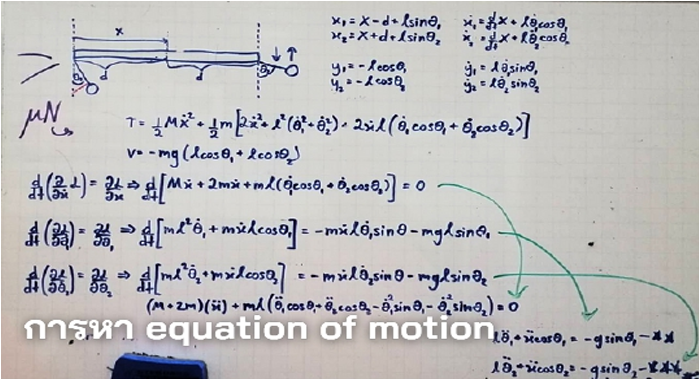 x
x₁ = x - d + lsinθ₁ ẋ₁ = d/dt x + lθ̇₁cosθ₁
x₂ = x + d + lsinθ₂ ẋ₂ = d/dt x + lθ̇₂cosθ₂
d d θ₁ θ₂
y₁ = -lcosθ₁ ẏ₁ = lθ̇₁sinθ₁
y₂ = -lcosθ₂ ẏ₂ = lθ̇₂sinθ₂
μN
T = 1/2 Mẋ² + 1/2 m[2ẋ² + l²(θ̇₁² + θ̇₂²) + 2ẋl(θ̇₁cosθ₁ + θ̇₂cosθ₂)]
V = -mg(lcosθ₁ + lcosθ₂)
d/dt(∂/∂ẋ L) = ∂L/∂x ⇒ d/dt[Mẋ + 2mẋ + ml(θ̇₁cosθ₁ + θ̇₂cosθ₂)] = 0
d/dt(∂L/∂θ̇₁) = ∂L/∂θ₁ ⇒ d/dt[ml²θ̇₁ + mẋlcosθ₁] = -mẋlθ̇₁sinθ - mglsinθ₁
d/dt(∂L/∂θ̇₂) = ∂L/∂θ₂ ⇒ d/dt[ml²θ̇₂ + mẋlcosθ₂] = -mẋlθ̇₂sinθ - mglsinθ₂
(M + 2m)(ẍ) + ml(θ̈₁cosθ₁ + θ̈₂cosθ₂ - θ̇₁²sinθ₁ - θ̇₂²sinθ₂) = 0
การหา equation of motion
lθ̈₁ + ẍcosθ₁ = -gsinθ₁ - **
lθ̈₂ + ẍcosθ₂ = -gsinθ₂ - ***